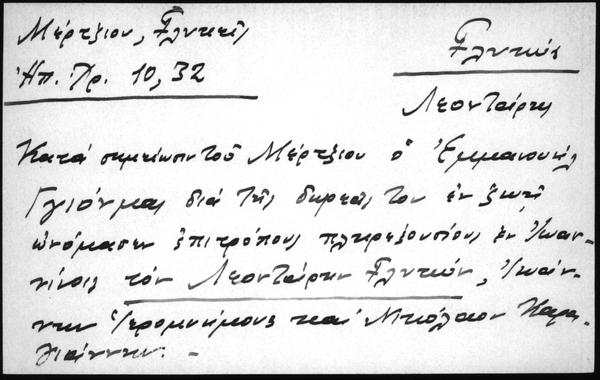 Μέρτζιου, Γλυκεῖς
Ἠπ. Χρ. 10, 32
Γλυκύς
Λεοντάρης
Κατά σημείωσιν τοῦ Μέρτζιου ὁ Ἐμμανουήλ
Γγιόνμας διά τῆς δωρεᾶς του ἐν ζωῇ
ὠνόμασεν ἐπιτρόπους πληρεξουσίους ἐν Ἰωαν-
νίνοις τόν Λεοντάρην Γλυκύν, Ἰωάν-
νην Ἱερομνήμους καί Νικόλαον Καρα-
γιάννην. –